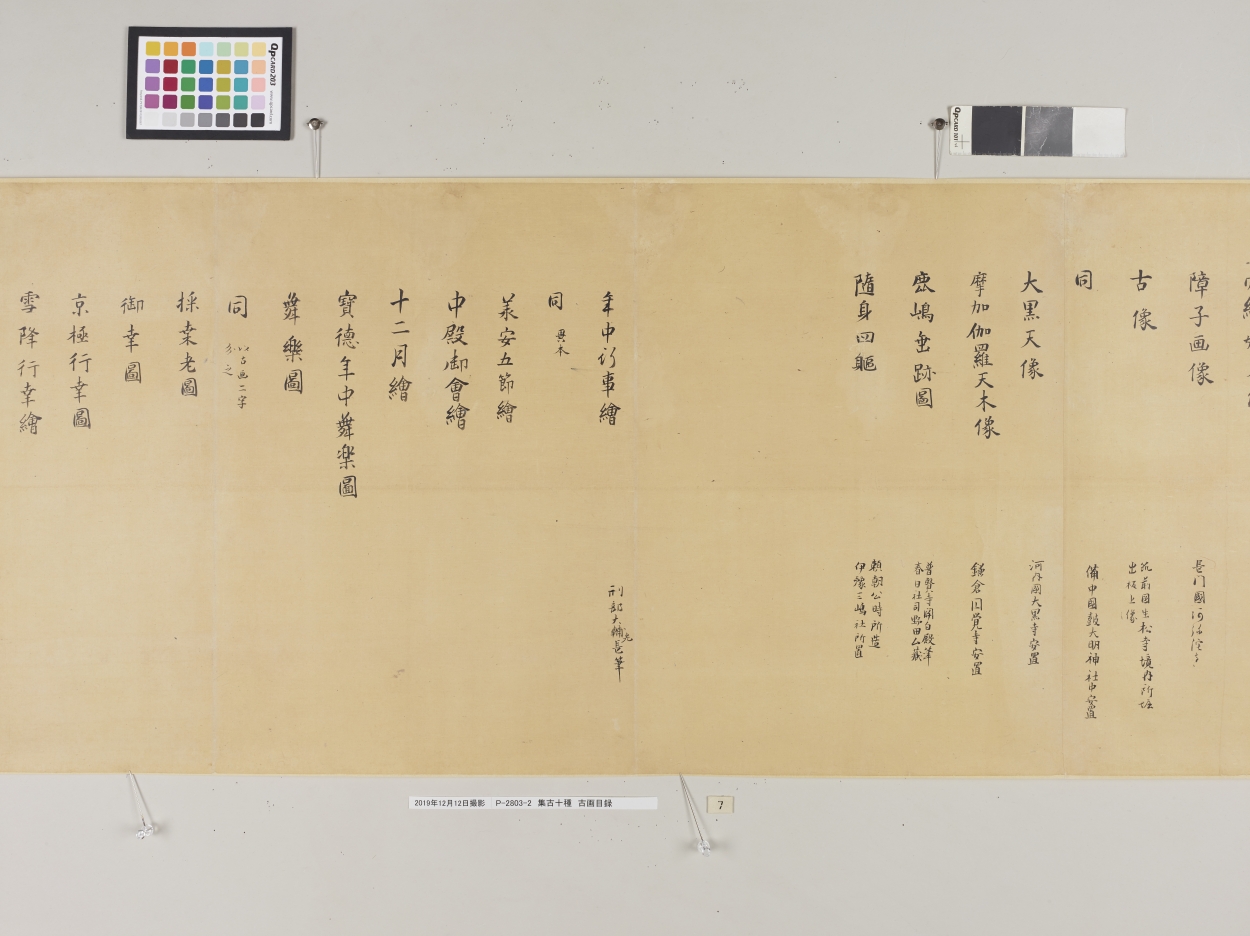 障子画像
長門國
古像
筑前国生松寺境内所堀
出板上像
同
備中國鼓大明神社中安置
大黒天像
河内國大黒寺安置
摩加伽羅天木像
鎌倉円覚寺安置
鹿嶋垂跡圖
普賢寺関白殿筆
春日社司野田ム蔵
隨身四軀
頼朝公時所造
伊豫三嶋社所置
年中行事繪
刑部大輔光長筆
同 異本
羕安五節繪
中殿御會繪
十二月繪
寶德年中舞楽圖
舞樂圖
同 以古画二字分之
採桒老圖
御幸圖
京極行幸圖
雪降行幸繪
QPCARD 203
QPCARD 201
2019年12月12日撮影 P-2803-2 集古十種 古画目録
7